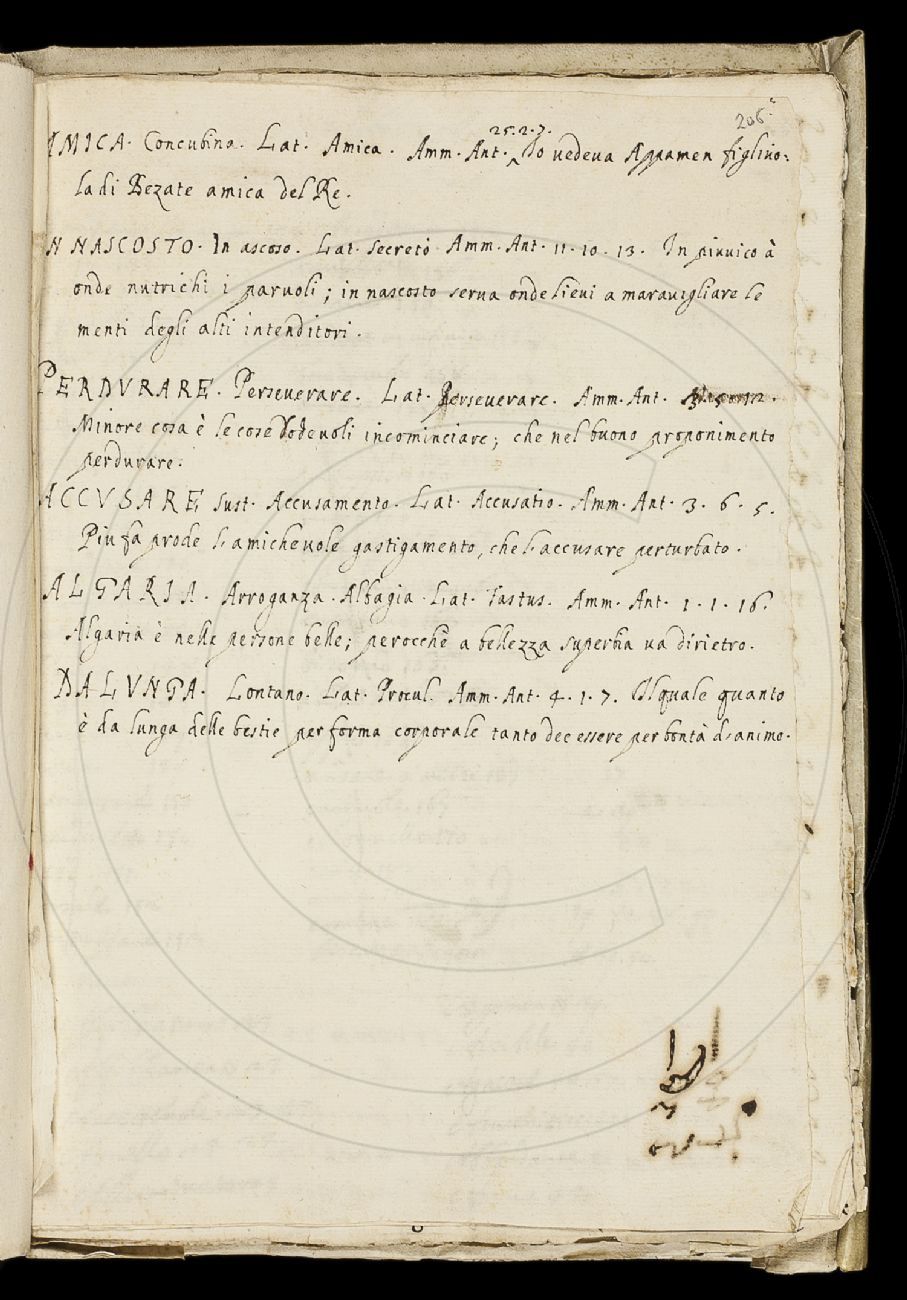 206
AMICA. Concubina. Lat. Amica. Amm. Ant. 25.2.7. Io vedeva Apamen figliuo:
la di Bezate amica del Re.
IN NASCOSTO. In ascoso. Lat. secretò Amm. Ant. 11. 10. 13. In piuuico à
onde nutrichi i paruoli; in nascosto serua onde lieui a marauigliare le
menti degli alti intenditori.
PERDVRARE. Perseuerare. Lat. Perseuerare. Amm. Ant.
Minore cosa è le cose lodeuoli incominciare; che nel buono proponimento
perdurare.
ACCVSARE sust. Accusamento. Lat. Accusatio. Amm. Ant. 3. 6. 5.
Piu fa prode l'amicheuole gastigamento, che l'accusare perturbato.
ALGARIA. Arroganza. Albagia. Lat. Fastus. Amm. Ant. 1. 1. 16.
Algaria è nelle persone belle; perocchè a bellezza superbia ua dirietro.
DALVNGA. Lontano. Lat. Procul. Amm. Ant. 4. 1. 7. Il quale quanto
è da lunga delle bestie per forma corporale tanto dee essere per bontà d'animo.